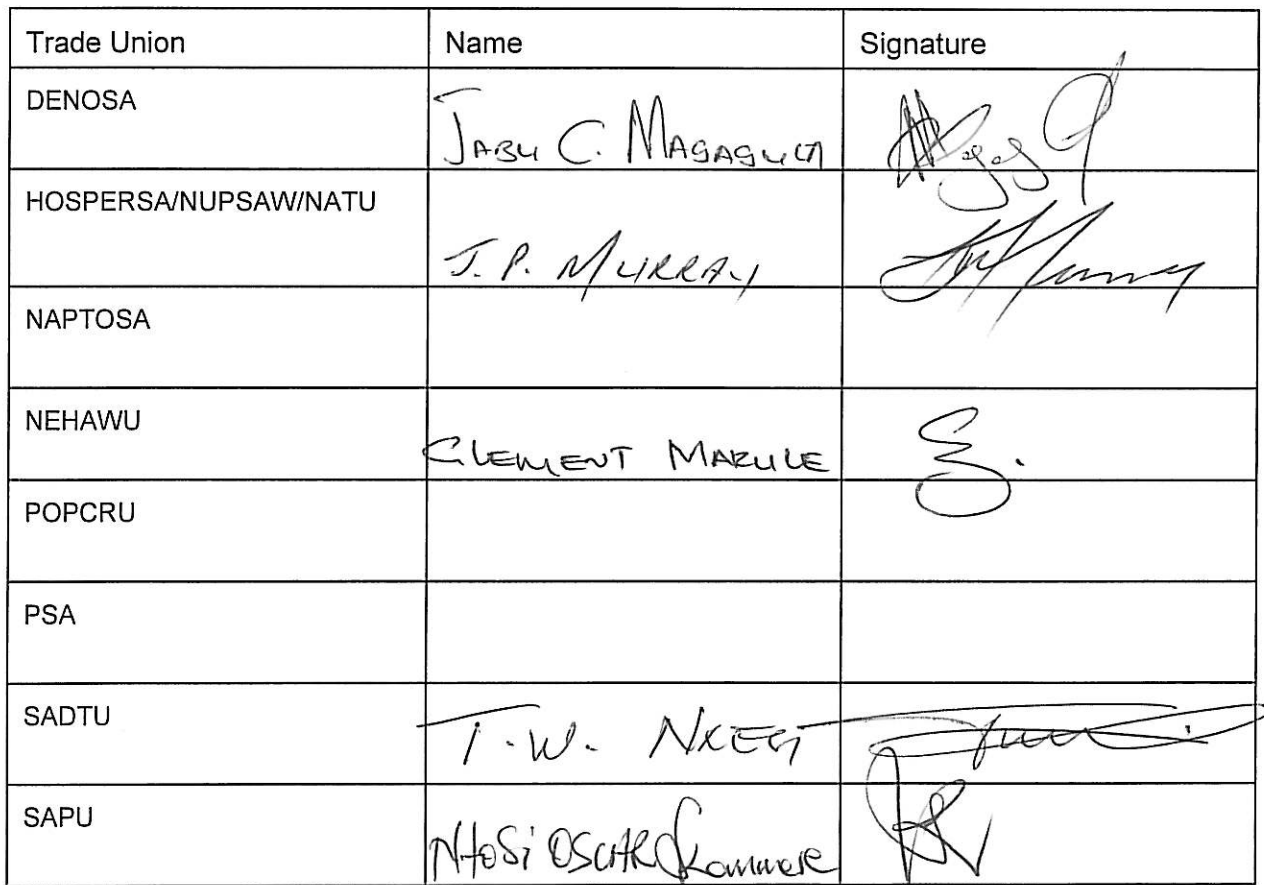 Trade Union Name Signature
DENOSA JABU C. MAGAGULA
HOSPERSA/NUPSAW/NATU J.P. MURRAY
NAPTOSA
NEHAWU CLEMENT MARULE
POPCRU
PSA
SADTU T.W. NXESI
SAPU OSCAR